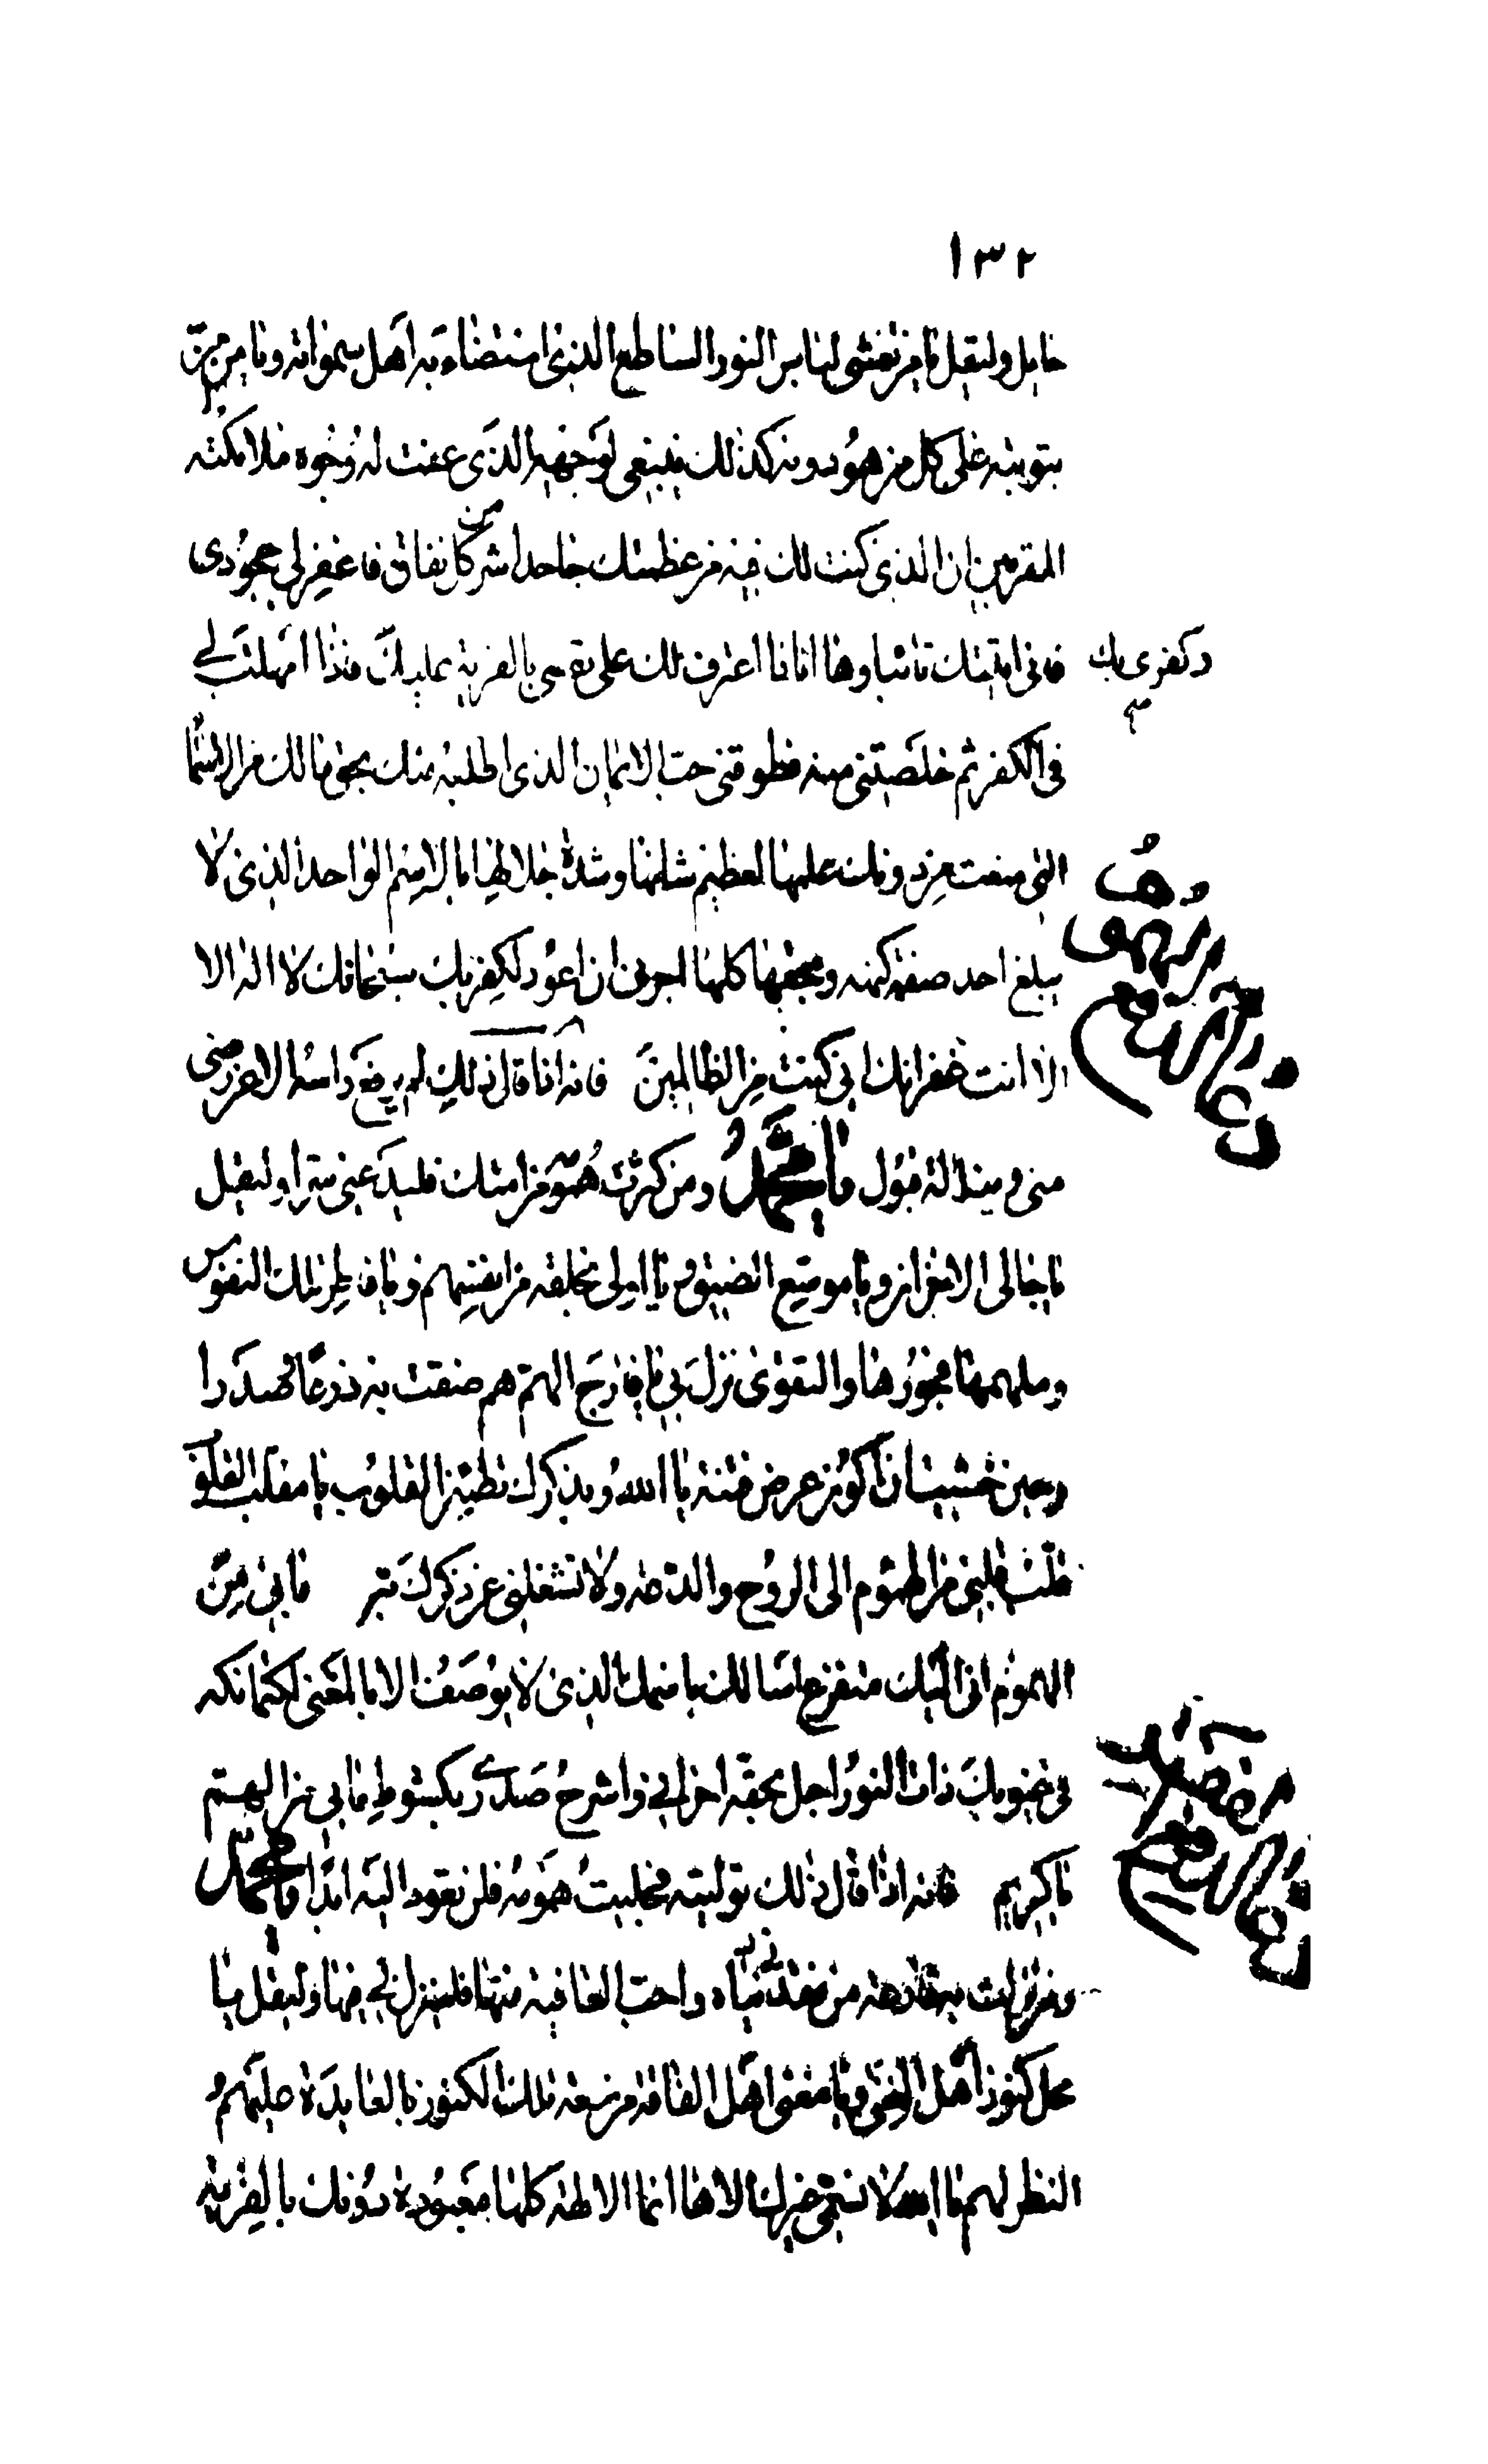 ١٣٢
حايل وليقل يا من تغشى لباس النور الساطع الذي استضاء به اهل سمواته ويا من حزن
برؤيته على كل من هو دونه كذلك ينبغي لوجهه الذي عنت له وجوه ملائكته
المقربين ان الذي كنت لك فيه من عظمتك جاحدا اشر من كل نفاق فاغفر لي جحودي
فاني اتيتك تائبا وها انا ذا اعترف لك على نفسي بالفرية عليك فاذا امهلت لي
وكفري بك
في الكفر ثم خلصتني منه فطوقني حب الايمان الذي اطلبه منك بحق ما لك من الاسماء
التي منعت من دونك علمها لعظيم شانها وشدة جلالها بالاسم الواحد الذي لا
يبلغ احد صفة كنهه وبحقها كلها اجرني ان اعود لكفر بك سبحانك لا اله الا
الا انت غفرانك اني كنت من الظالمين فانه اذا قال ذلك لم يرفع راسه الا عن رضى
مني وبينا له قبول يا محمد ومن كثرت همومه من امتك فليدعني سرا وليقل
دعاء لدفع الهموم
يا جالي الاحزان ويا موسع الضيق ويا اولى بخلقه من انفسهم ويا فاطر تلك النفوس
وملهمها فجورها والتقوى نزل بي يا فارج الهم هم ضقت به ذرعا وصدرا
وحين خشيت ان اكون عرض فتنة يا الله وبذكرك تطمئن القلوب يا مقلب القلوب
قلب قلبي من الهموم الى الروح والدعة ولا تشغلني عن ذكرك بتر ما بي من
الهموم اني اليك متضرع اسالك باسمك الذي لا يوصف الا بالمعنى لكتمانكه
في غيوبك ذات النور اجل بحقه احزاني واشرح صدري بكشوط ما بي من الهم
يا كريم فانه اذا قال ذلك توليته فجليت همومه فلن تعود اليه ابدا يا محمد
ومن نزلت به قارعة من فقر في دنياه واحب العافية منها فلينزل بي فيها وليقل يا
محل كنوز اهل الغنى ويا مغني اهل الفاقة من سعة تلك الكنوز بالعائدة عليهم و
النظر لهم يا الله لا يسمى غيرك الاها انما الالهة كلها معبودة دونك بالفرية